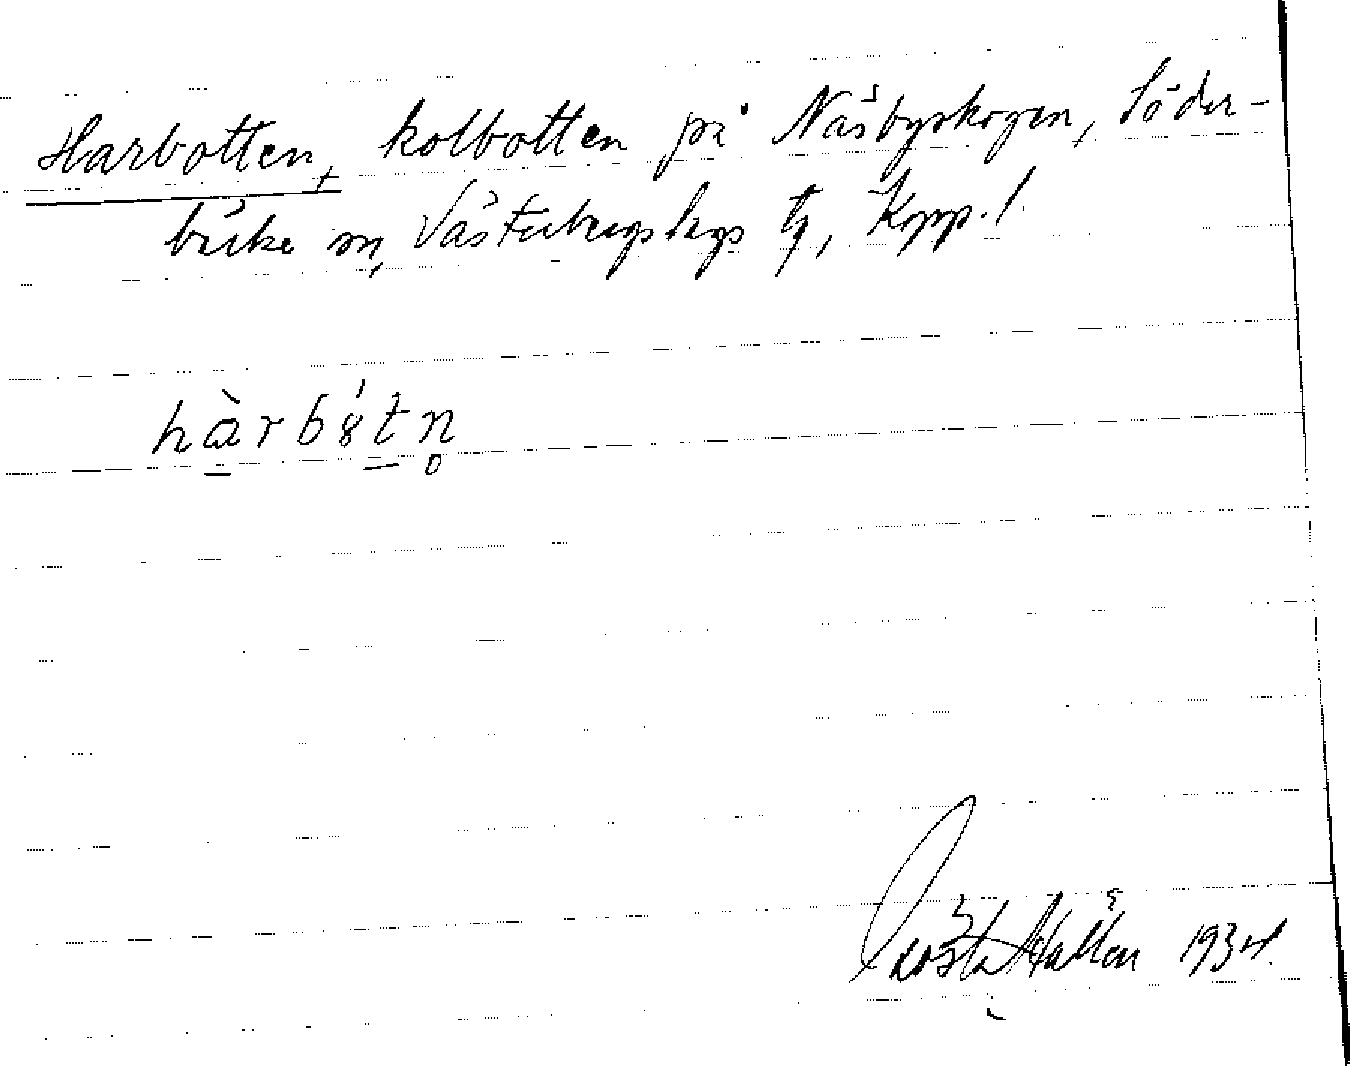 Harbotten, kolbotten på Näsbyskogen, Söder-
bärke sn, Västerbergslags tg, Kopp. l.
hàrb8́tn̥
Gösta Hallén 1934.